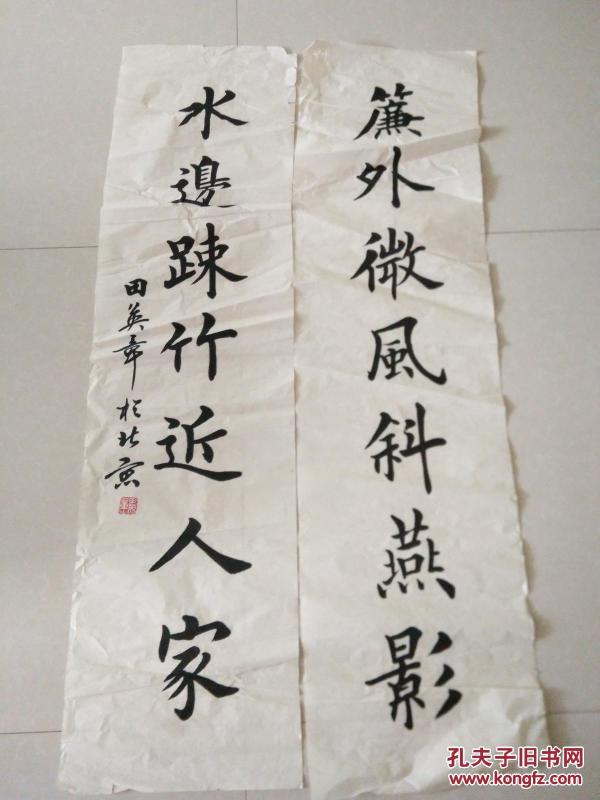 簾外微風斜燕影
水邊踈竹近人家
田英章於北京
孔夫子旧书网
www.kongfz.com